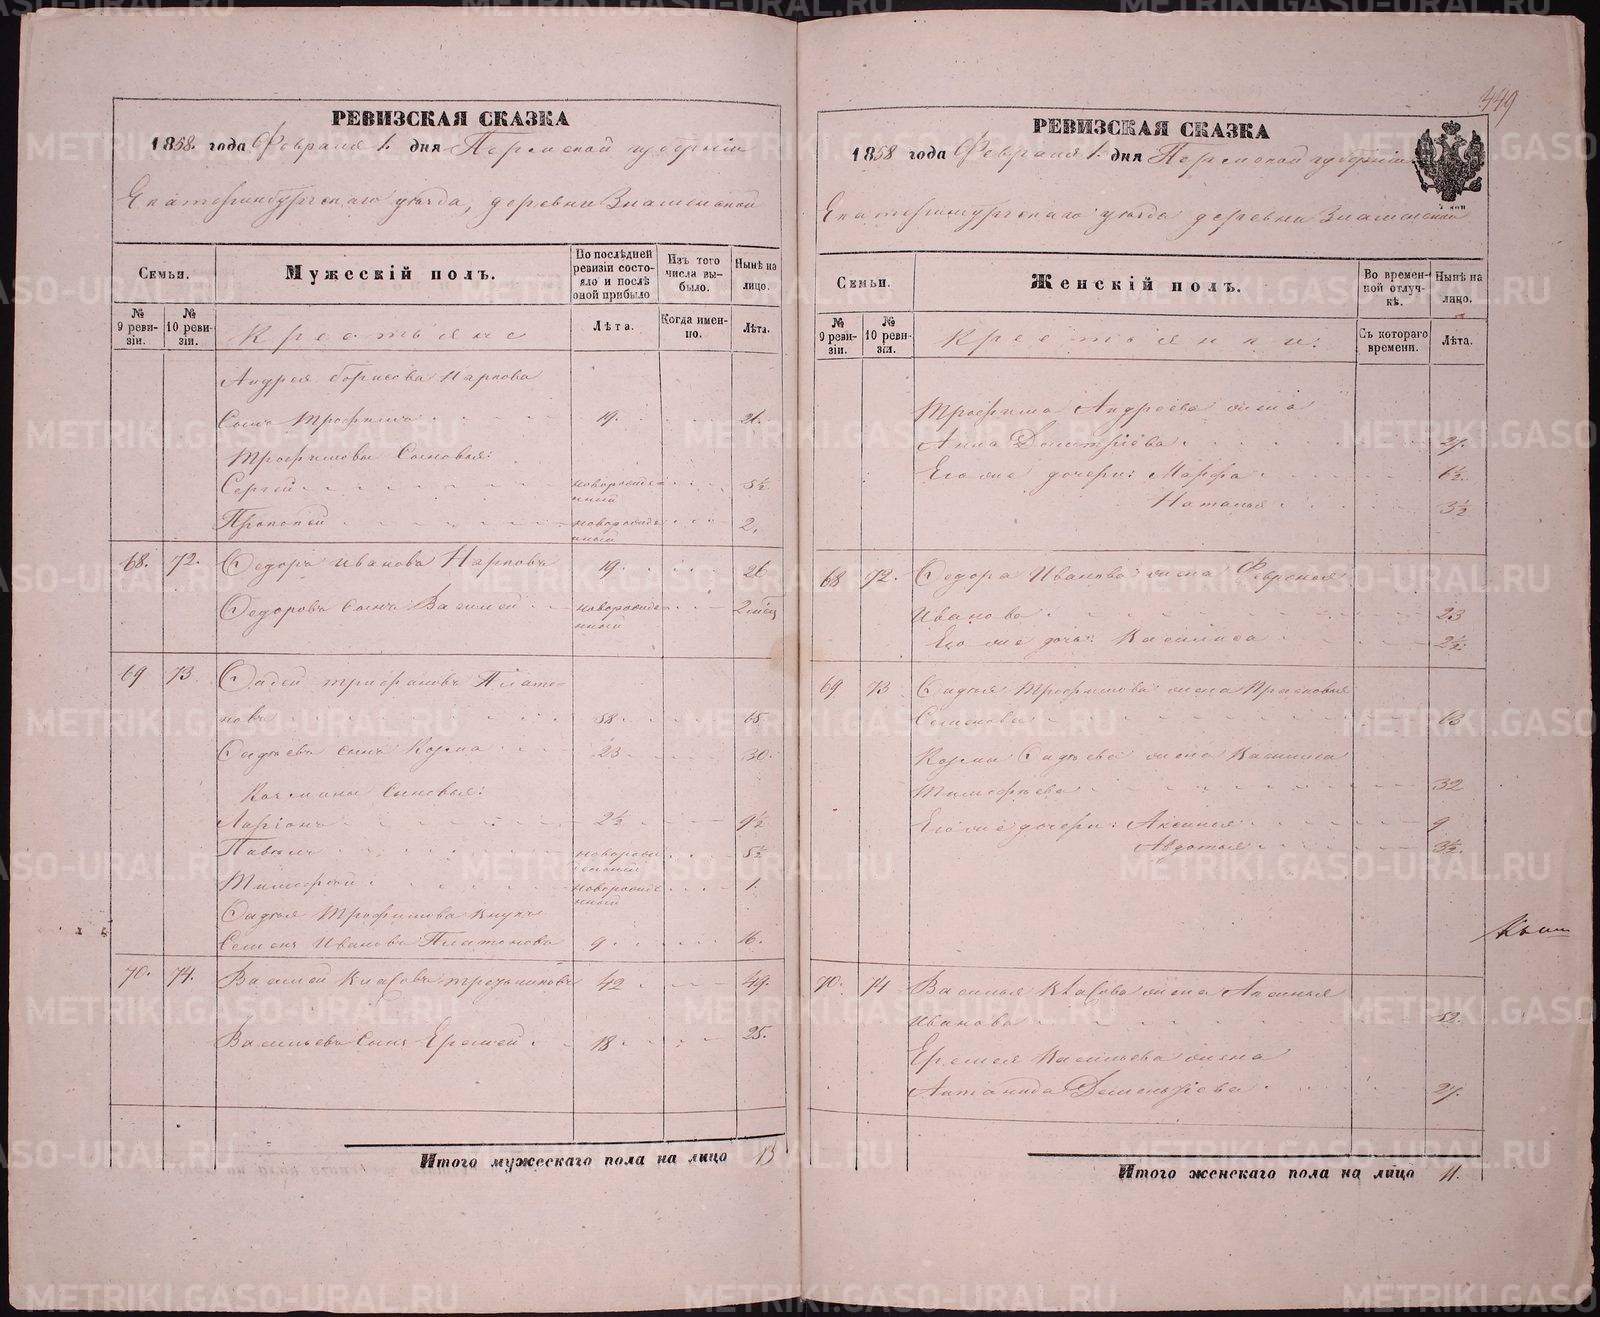 449
РЕВИЗСКАЯ СКАЗКА
1858. года Февраля 1. дня Пермской губернiи
Екатеринбургскаго уѣзда, деревни Знаменской
Семьи.
Мужескiй полъ.
По послѣдней ревизiи состояло и послѣ оной прибыло
Изъ того числа выбыло.
Нынѣ на лицо.
№ 9 ревизiи.
№ 10 ревизiи.
Крестьяне
Лѣта.
Когда именно.
Лѣта.
Андрея Борисова Карпова
Сынъ Трофимъ 19. 26.
Трофимовы Сыновья:
Сергей новорожденный 5½
Прокопей новорожденный 2.
68. 72. Ѳедоръ Иванова Карповъ 19. 26
Ѳедоровъ сынъ Василей новорожденный 2 мѣсяц
69 73. Садей Трифановъ Платоновъ 58. 65.
Садѣевъ сынъ Козма 23 30.
Козмины Сыновья:
Ларiонъ 2½ 9½
Павелъ новорожденный 5½
Тимофей новорожденный 1.
Садѣя Трофимова внукъ
Семенъ Иванова Платонова 9. 16.
70. 74. Василей Трезниковъ 42 49.
Васильевъ Сынъ Еремей 18 25.
Итого мужескаго пола на лицо 13
РЕВИЗСКАЯ СКАЗКА
1858 года Февраля 1. дня Пермской губернiи
Екатеринбургскаго уѣзда деревни Знаменской
Семьи.
Женскiй полъ.
Во временной отлучкѣ.
Нынѣ на лицо.
№ 9 ревизiи.
№ 10 ревизiи.
Крестьянки:
Съ котораго времени.
Лѣта.
Трофима Андреева жена
Анна Дмитрiева 27.
Его же дочери: Марфа 6½.
Наталья 3½
68 72. Ѳедора Иванова жена Февронья
Иванова 23
Его же дочь: Василиса 2½.
69 73 Садѣя Трофимова жена Прасковья
Семенова 63
Козмы Садѣева жена Василиса
Тимофѣева 32
Его же дочери: Аксинья 9
Авдотья 3½.
70. 74 Василья жена Аксинья
Иванова 52.
Еремея Васильева жена
Дементьева 27.
Итого женскаго пола на лицо 11.
METRIKI.GASO-URAL.RU